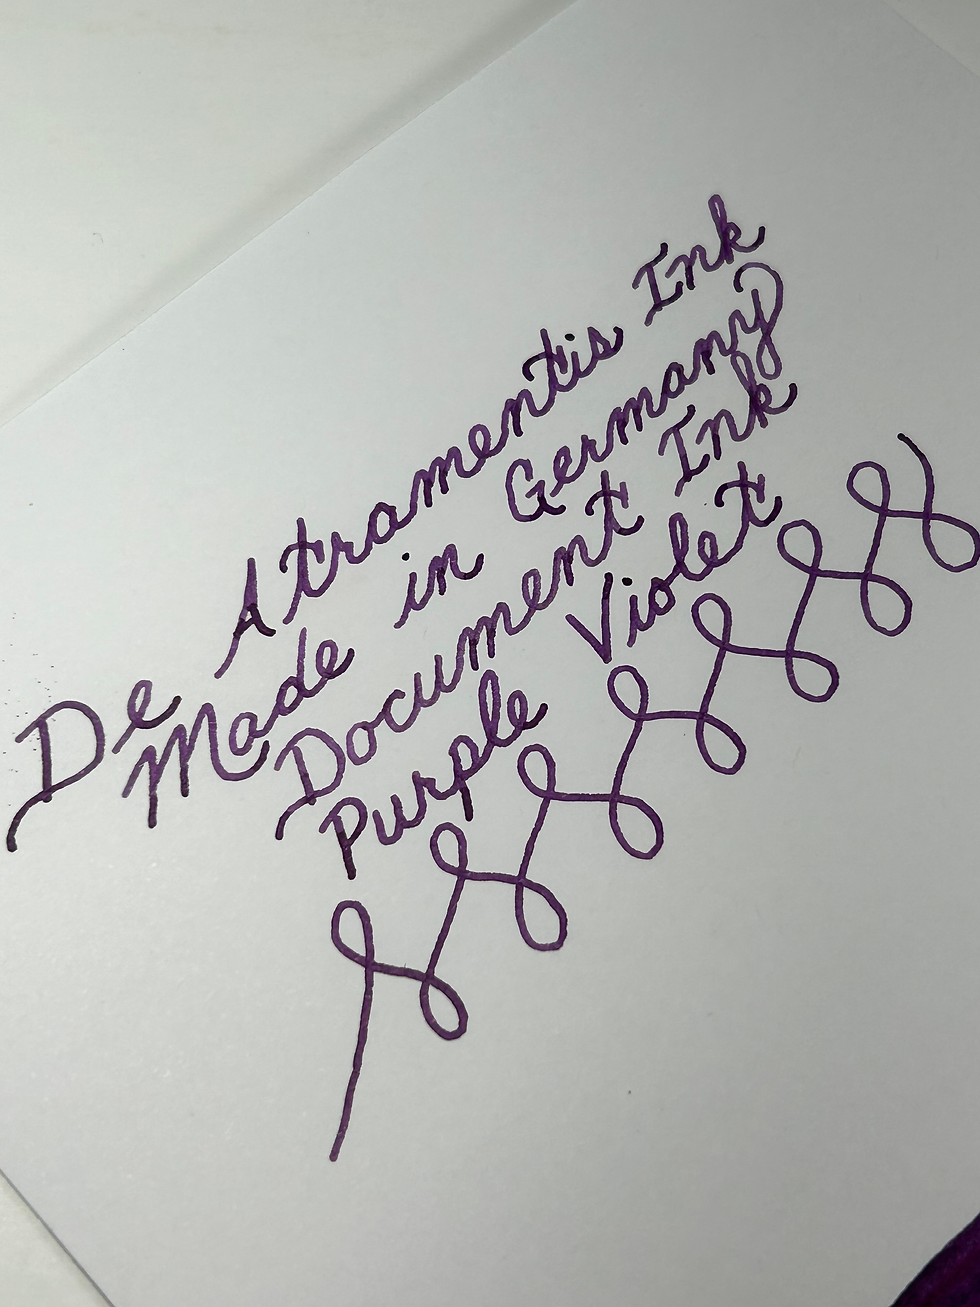 De Atramentis Ink
Made in Germany
Document Ink
Purple Violet